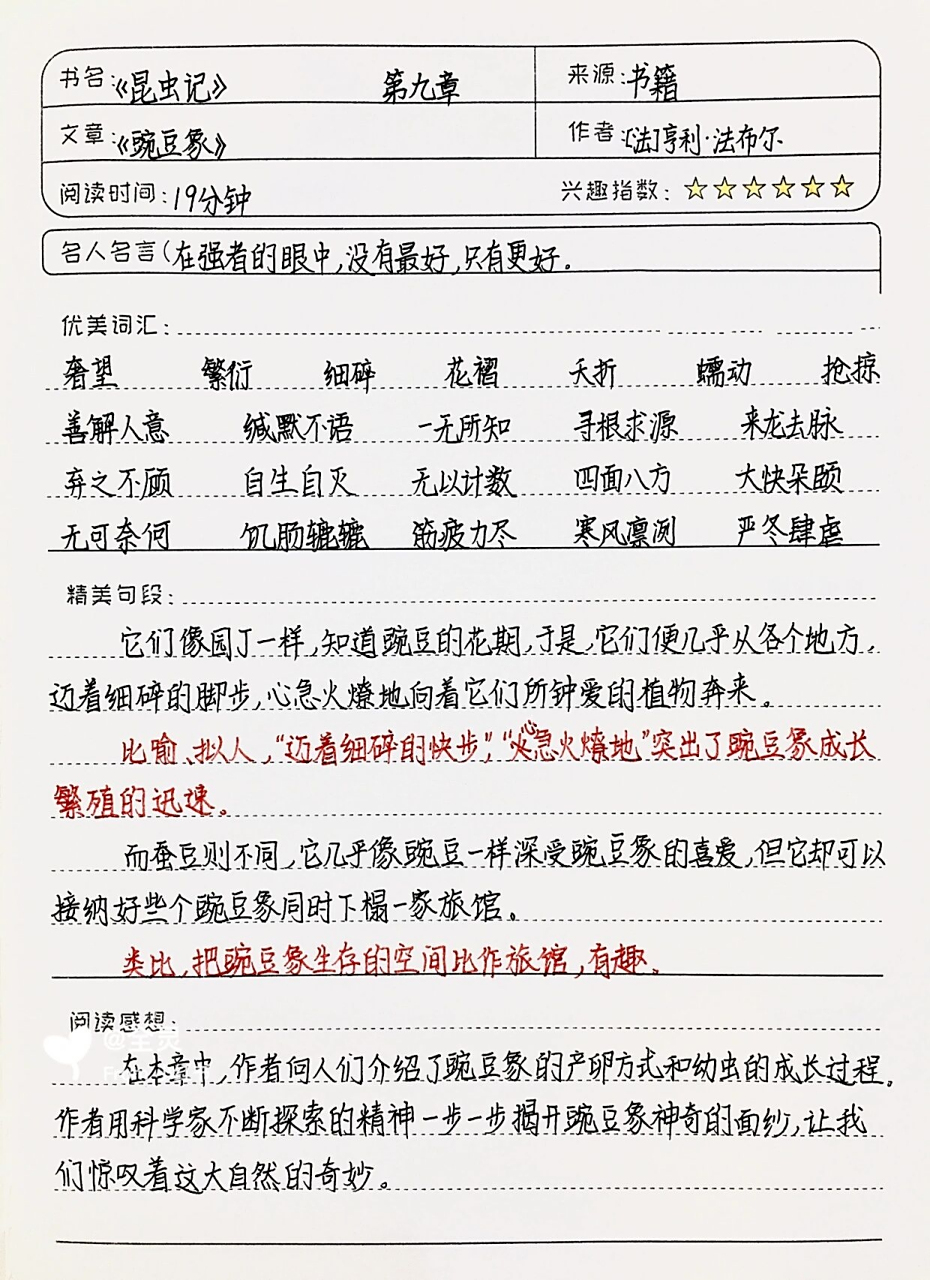 书名:《昆虫记》 第九章 来源:书籍
文章:《豌豆象》 作者:[法]亨利·法布尔
阅读时间:19分钟 兴趣指数:☆☆☆☆☆☆
名人名言(在强者的眼中,没有最好,只有更好。
优美词汇:
奢望 繁衍 细碎 花褶 夭折 蠕动 抢掠
善解人意 缄默不语 一无所知 寻根求源 来龙去脉
弃之不顾 自生自灭 无以计数 四面八方 大快朵颐
无可奈何 饥肠辘辘 筋疲力尽 寒风凛冽 严冬肆虐
精美句段:
它们像园丁一样,知道豌豆的花期,于是,它们便几乎从各个地方,
迈着细碎的脚步,心急火燎地向着它们所钟爱的植物奔来。
比喻、拟人,“迈着细碎的快步”,“心急火燎地”突出了豌豆象成长
繁殖的迅速。
而蚕豆则不同,它几乎像豌豆一样深受豌豆象的喜爱,但它却可以
接纳好些个豌豆象同时下榻一家旅馆。
类比,把豌豆象生存的空间比作旅馆,有趣。
阅读感想:
在本章中,作者向人们介绍了豌豆象的产卵方式和幼虫的成长过程。
作者用科学家不断探索的精神一步一步揭开豌豆象神奇的面纱,让我
们惊叹着这大自然的奇妙。